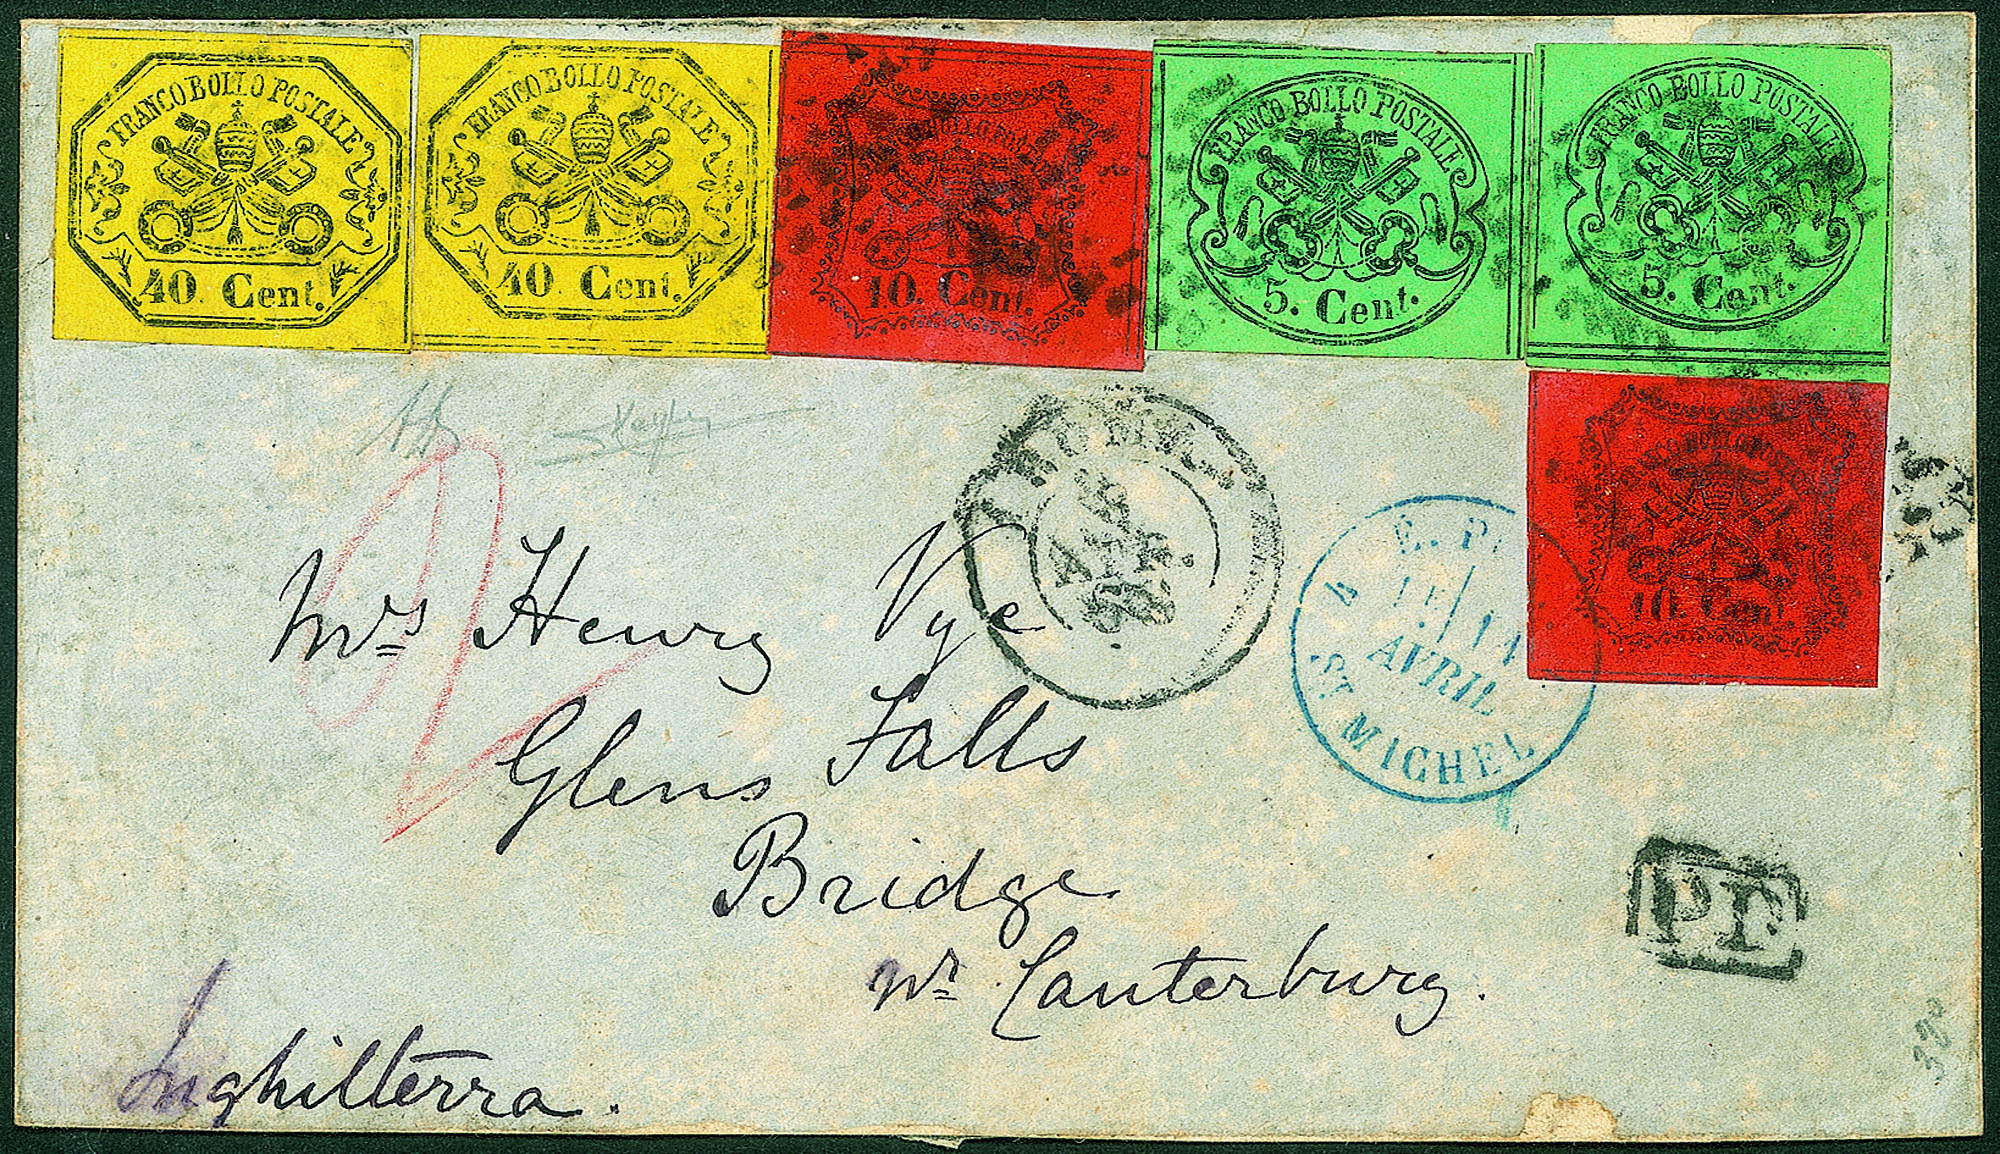 FRANCO BOLLO POSTALE
40. Cent.
FRANCO BOLLO POSTALE
40. Cent.
FRANCO BOLLO POSTALE
10. Cent.
FRANCO BOLLO POSTALE
5. Cent.
FRANCO BOLLO POSTALE
5. Cent.
FRANCO BOLLO POSTALE
10. Cent.
ROMA
APR.
68
E. P.
14
AVRIL
ST. MICHEL
Mrs Henry Vye
Glens Falls
Bridge
Nr. Canterburg.
PD
Inghilterra.